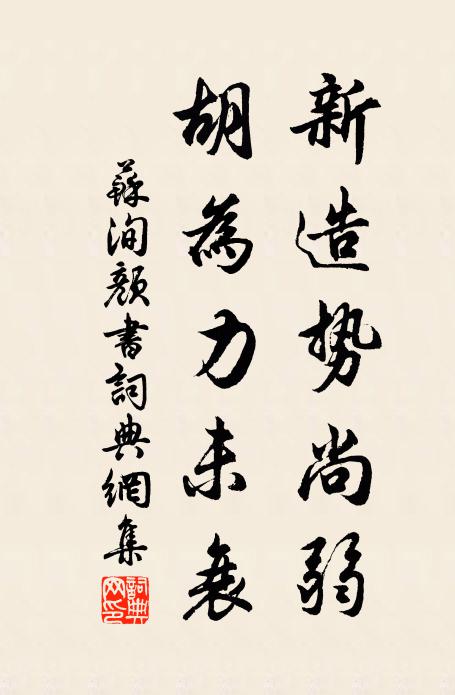 新造勢尚弱
胡為力未衰
蘇洵顏書詞典網集
詞典网印